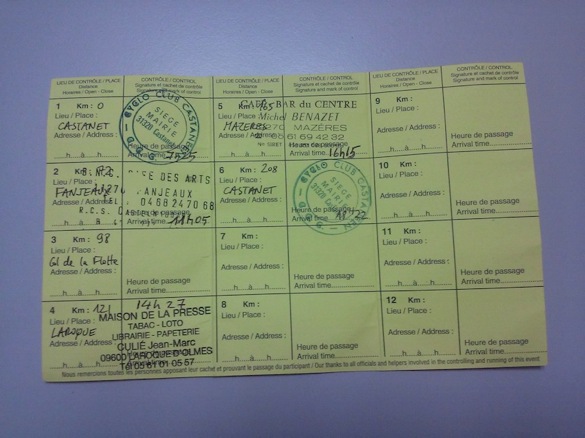 LIEU DE CONTRÔLE / PLACE
Distance
Horaires / Open - Close
CONTRÔLE / CONTROL
Signature et cachet de contrôle
Signature and mark of control
LIEU DE CONTRÔLE / PLACE
Distance
Horaires / Open - Close
CONTRÔLE / CONTROL
Signature et cachet de contrôle
Signature and mark of control
LIEU DE CONTRÔLE / PLACE
Distance
Horaires / Open - Close
CONTRÔLE / CONTROL
Signature et cachet de contrôle
Signature and mark of control
1 Km : 0
Lieu / Place :
CASTANET
Adresse / Address :
h à h
CYCLO CLUB CASTANET
SIEGE
MAIRIE
31320
7h25
2 Km :
Lieu / Place :
FANJEAUX
DES ARTS
ANJEAUX
04 68 24 70 68
R.C.S.
Arrival time 11h05
3 Km : 98
Lieu / Place :
Col de la Flotte
Adresse / Address :
h à h
Heure de passage
Arrival time
4 Km : 121
Lieu / Place :
LAROQUE
Adresse / Address :
h à h
14h27
MAISON DE LA PRESSE
TABAC - LOTO
LIBRAIRIE - PAPETERIE
CULIÉ Jean-Marc
09600 LAROQUE D'OLMES
Tél 05 61 01 05 57
5 Km : 165
Lieu / Place :
MAZERES
Adresse / Address :
h à h
BAR du CENTRE
Michel BENAZET
MAZÈRES
05 61 69 42 82
Heure de passage
Arrival time 16h15
6 Km : 208
Lieu / Place :
CASTANET
Adresse / Address :
h à h
CYCLO CLUB CASTANET
SIEGE
MAIRIE
Heure de passage
Arrival time 18h22
7 Km :
Lieu / Place :
Adresse / Address :
h à h
Heure de passage
Arrival time
8 Km :
Lieu / Place :
Adresse / Address :
h à h
Heure de passage
Arrival time
9 Km :
Lieu / Place :
Adresse / Address :
h à h
Heure de passage
Arrival time
10 Km :
Lieu / Place :
Adresse / Address :
h à h
Heure de passage
Arrival time
11 Km :
Lieu / Place :
Adresse / Address :
h à h
Heure de passage
Arrival time
12 Km :
Lieu / Place :
Adresse / Address :
h à h
Heure de passage
Arrival time
Nous remercions toutes les personnes apposant leur cachet et prouvant le passage du participant / Our thanks to all officials and helpers involved in the controlling and running of this event